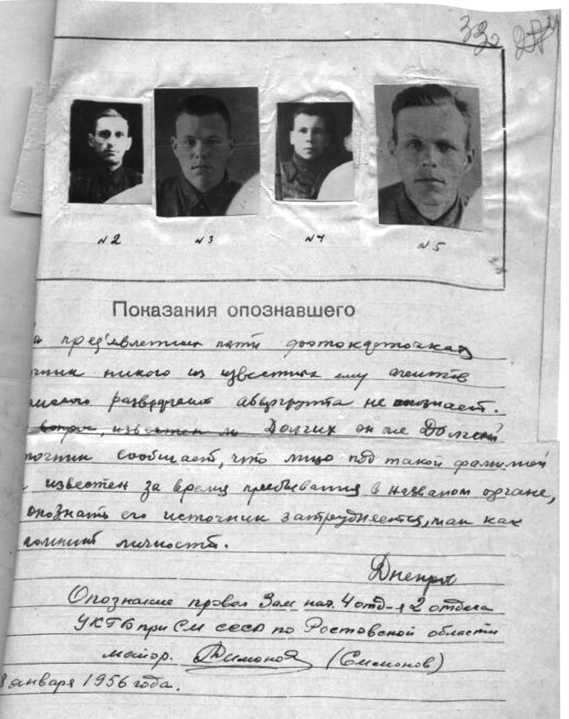 332
№2 №3 №4 №5
Показания опознавшего
пред'явленных пяти фотокарточках
никого из известных ему агентов
абвергруппа не опознает.
известен ли Долгих он же Долгий
сообщает, что лицо под такой фамилией
известен за время пребывания в названом органе,
опознать его источник затрудняется, так как
личность.
Днепр
Опознание провел Зам нач. 4 отд-я 2 отдела
УКГБ при СМ СССР по Ростовской области
майор. (Симонов)
января 1956 года.